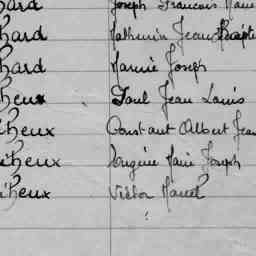 hard Joseph Francois Marie
chard Mathurin Jean Baptis
chard Marie Joseph
cheux Paul Jean Louis
icheux Constant Albert Jean
icheux Eugène Marie Joseph
icheux Victor Marcel